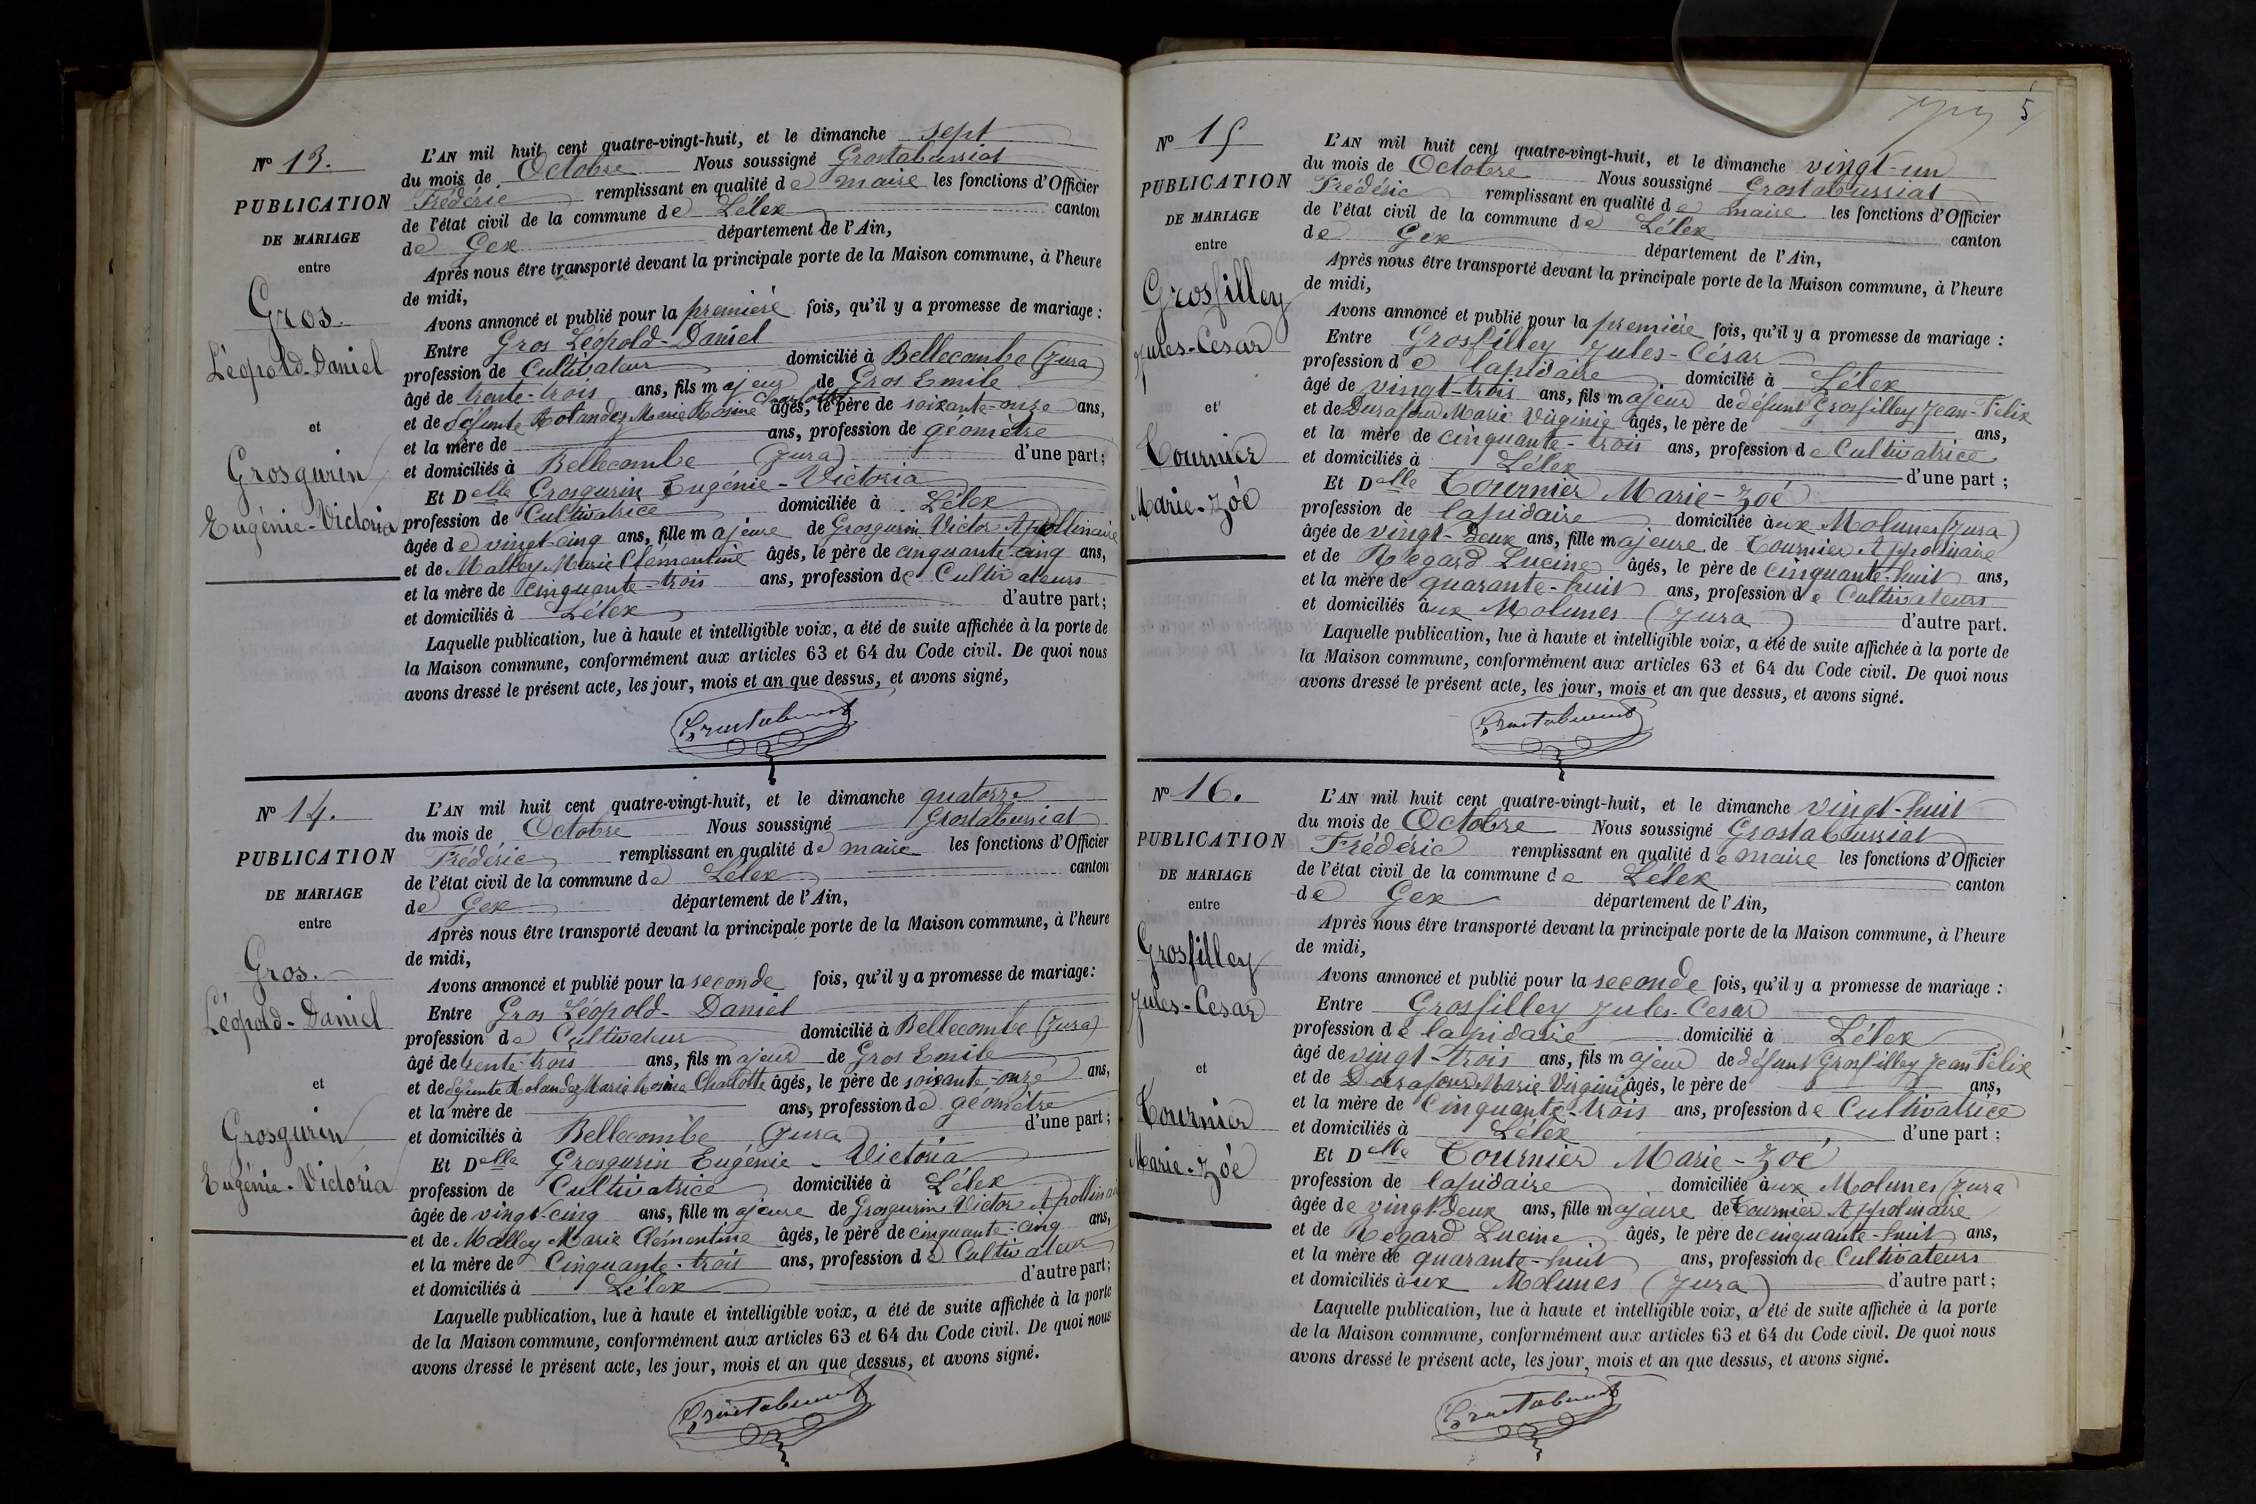 Nº 13.
PUBLICATION
DE MARIAGE
entre
Gros.
Léopold-Daniel
et
Grosgurin
Eugénie-Victoria
L'AN mil huit cent quatre-vingt-huit, et le dimanche sept
du mois de Octobre Nous soussigné Grostabussiat
Frédéric remplissant en qualité de maire les fonctions d'Officier
de l'état civil de la commune de Lélex canton
de Gex département de l'Ain,
Après nous être transporté devant la principale porte de la Maison commune, à l'heure
de midi,
Avons annoncé et publié pour la première fois, qu'il y a promesse de mariage :
Entre Gros Léopold-Daniel
profession de Cultivateur domicilié à Bellecombe (Jura)
âgé de trente-trois ans, fils majeur de Gros Emile
et de défunte Rolandez Marie Rosine Charlotte âgés, le père de soixante-onze ans,
et la mère de ans, profession de géomètre
et domiciliés à Bellecombe (Jura) d'une part ;
Et Delle Grosgurin Eugénie-Victoria
profession de Cultivatrice domiciliée à Lélex
âgée de vingt-cinq ans, fille majeure de Grosgurin Victor Apollinaire
et de Malley Marie Clémentine âgés, le père de cinquante-cinq ans,
et la mère de cinquante-trois ans, profession de Cultivateurs
et domiciliés à Lélex d'autre part ;
Laquelle publication, lue à haute et intelligible voix, a été de suite affichée à la porte de
la Maison commune, conformément aux articles 63 et 64 du Code civil. De quoi nous
avons dressé le présent acte, les jour, mois et an que dessus, et avons signé,
Grostabussiat
Nº 14.
PUBLICATION
DE MARIAGE
entre
Gros.
Léopold-Daniel
et
Grosgurin
Eugénie-Victoria
L'AN mil huit cent quatre-vingt-huit, et le dimanche quatorze
du mois de Octobre Nous soussigné Grostabussiat
Frédéric remplissant en qualité de maire les fonctions d'Officier
de l'état civil de la commune de Lélex canton
de Gex département de l'Ain,
Après nous être transporté devant la principale porte de la Maison commune, à l'heure
de midi,
Avons annoncé et publié pour la seconde fois, qu'il y a promesse de mariage :
Entre Gros Léopold-Daniel
profession de Cultivateur domicilié à Bellecombe (Jura)
âgé de trente-trois ans, fils majeur de Gros Emile
et de défunte Rolandez Marie Rosine Charlotte âgés, le père de soixante-onze ans,
et la mère de ans, profession de géomètre
et domiciliés à Bellecombe (Jura) d'une part ;
Et Delle Grosgurin Eugénie-Victoria
profession de Cultivatrice domiciliée à Lélex
âgée de vingt-cinq ans, fille majeure de Grosgurin Victor Apollinai
et de Malley Marie Clémentine âgés, le père de cinquante-cinq ans,
et la mère de Cinquante-trois ans, profession de Cultivateurs
et domiciliés à Lélex d'autre part ;
Laquelle publication, lue à haute et intelligible voix, a été de suite affichée à la porte
de la Maison commune, conformément aux articles 63 et 64 du Code civil. De quoi nous
avons dressé le présent acte, les jour, mois et an que dessus, et avons signé.
Grostabussiat
5
Nº 15
PUBLICATION
DE MARIAGE
entre
Grosfilley
Jules-Cesar
et
Tournier
Marie-Zoé
L'AN mil huit cent quatre-vingt-huit, et le dimanche vingt-un
du mois de Octobre Nous soussigné Grostabussiat
Frédéric remplissant en qualité de maire les fonctions d'Officier
de l'état civil de la commune de Lélex canton
de Gex département de l'Ain,
Après nous être transporté devant la principale porte de la Maison commune, à l'heure
de midi,
Avons annoncé et publié pour la première fois, qu'il y a promesse de mariage :
Entre Grosfilley Jules-César
profession de lapidaire domicilié à Lélex
âgé de vingt-trois ans, fils majeur de défunt Grosfilley Jean-Felix
et de Durafour Marie Virginie âgés, le père de ans,
et la mère de cinquante-trois ans, profession de Cultivatrice
et domiciliés à Lélex d'une part ;
Et Delle Tournier Marie-Zoé
profession de lapidaire domiciliée aux Molunes (Jura)
âgée de vingt-deux ans, fille majeure de Tournier Appolinaire
et de Regard Lucine âgés, le père de cinquante-huit ans,
et la mère de quarante-huit ans, profession de Cultivateurs
et domiciliés aux Molunes (Jura) d'autre part.
Laquelle publication, lue à haute et intelligible voix, a été de suite affichée à la porte de
la Maison commune, conformément aux articles 63 et 64 du Code civil. De quoi nous
avons dressé le présent acte, les jour, mois et an que dessus, et avons signé.
Grostabussiat
Nº 16.
PUBLICATION
DE MARIAGE
entre
Grosfilley
Jules-Cesar
et
Tournier
Marie-Zoé
L'AN mil huit cent quatre-vingt-huit, et le dimanche vingt-huit
du mois de Octobre Nous soussigné Grostabussiat
Frédéric remplissant en qualité de maire les fonctions d'Officier
de l'état civil de la commune de Lélex canton
de Gex département de l'Ain,
Après nous être transporté devant la principale porte de la Maison commune, à l'heure
de midi,
Avons annoncé et publié pour la seconde fois, qu'il y a promesse de mariage :
Entre Grosfilley Jules-Cesar
profession de lapidaire domicilié à Lélex
âgé de vingt-trois ans, fils majeur de défunt Grosfilley Jean Félix
et de Durafour Marie Virginie âgés, le père de ans,
et la mère de Cinquante-trois ans, profession de Cultivatrice
et domiciliés à Lélex d'une part ;
Et Delle Tournier Marie-Zoé
profession de lapidaire domiciliée aux Molunes (Jura
âgée de vingt-deux ans, fille majeure de Tournier Appolinaire
et de Regard Lucine âgés, le père de cinquante-huit ans,
et la mère de quarante-huit ans, profession de Cultivateurs
et domiciliés aux Molunes (Jura) d'autre part ;
Laquelle publication, lue à haute et intelligible voix, a été de suite affichée à la porte
de la Maison commune, conformément aux articles 63 et 64 du Code civil. De quoi nous
avons dressé le présent acte, les jour, mois et an que dessus, et avons signé.
Grostabussiat